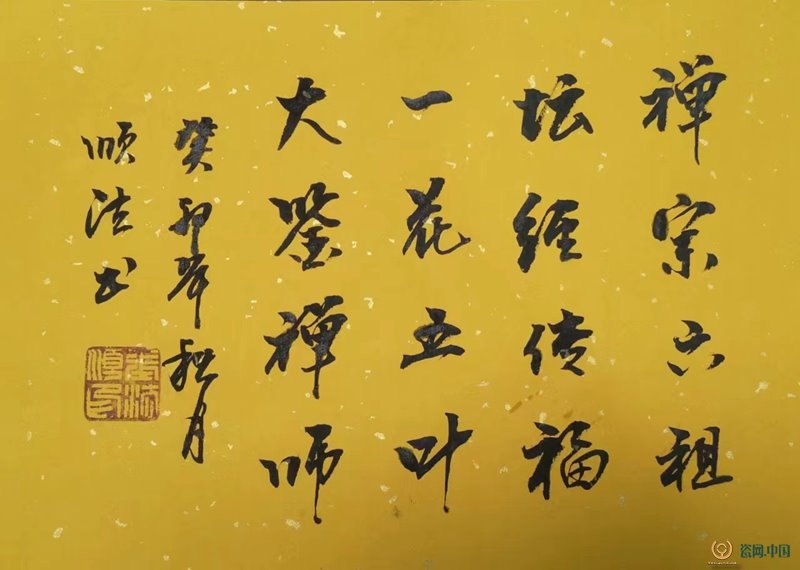 禅宗六祖
坛经传福
一花五叶
大鉴禅师
癸卯年秋月
顺法书
瓷网.中国